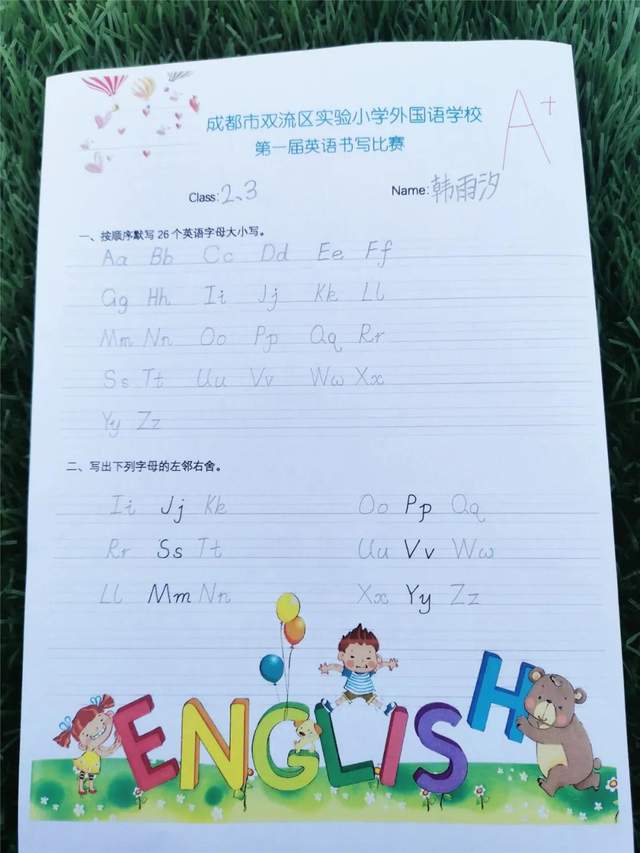 成都市双流区实验小学外国语学校
A+
第一届英语书写比赛
Class: 2、3 Name: 韩雨汐
一、按顺序默写 26 个英语字母大小写。
Aa Bb Cc Dd Ee Ff
Gg Hh Ii Jj Kk Ll
Mm Nn Oo Pp Qq Rr
Ss Tt Uu Vv Ww Xx
Yy Zz
二、写出下列字母的左邻右舍。
Ii Jj Kk Oo Pp Qq
Rr Ss Tt Uu Vv Ww
Ll Mm Nn Xx Yy Zz
ENGLISH